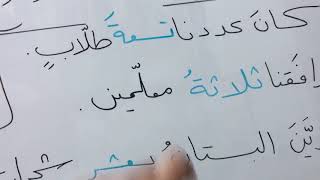 كانَ عددنا تسعةَ طلّابٍ.
رافَقنا ثلاثةُ معلّمين.
البستانُ بعشر